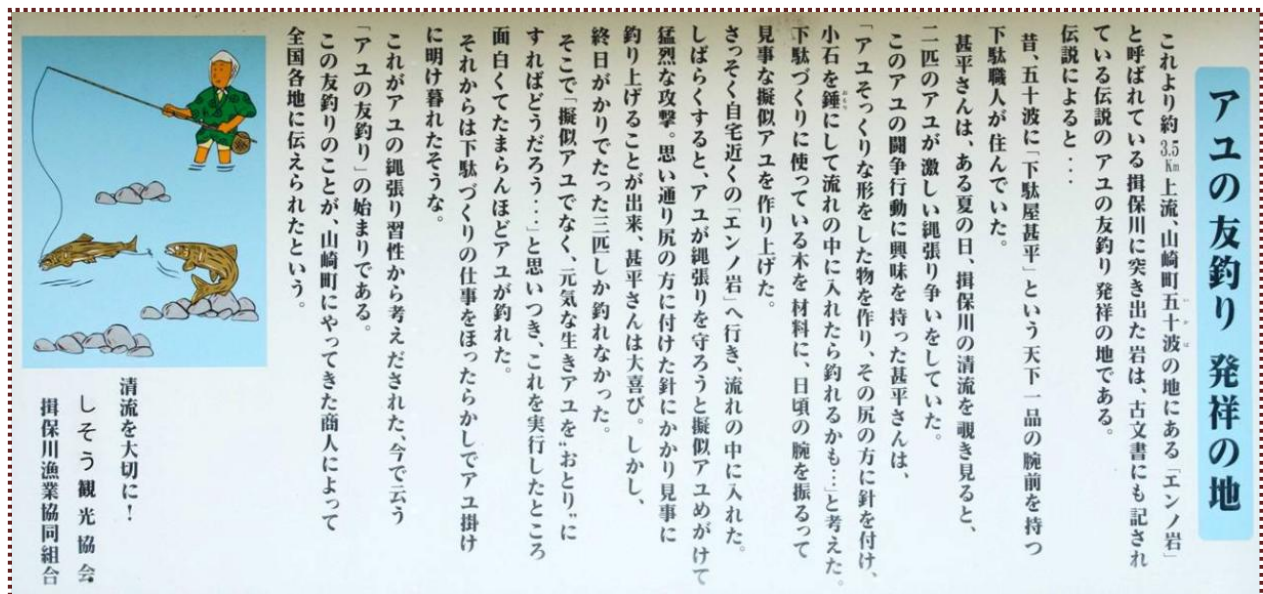 アユの友釣り 発祥の地
これより約3.5Km上流、山崎町五十波の地にある「エンノ岩」
と呼ばれている揖保川に突き出た岩は、古文書にも記され
ている伝説のアユの友釣り発祥の地である。
伝説によると・・・
昔、五十波に「下駄屋甚平」という天下一品の腕前を持つ
下駄職人が住んでいた。
甚平さんは、ある夏の日、揖保川の清流を覗き見ると、
二匹のアユが激しい縄張り争いをしていた。
このアユの闘争行動に興味を持った甚平さんは、
「アユそっくりな形をした物を作り、その尻の方に針を付け、
小石を錘にして流れの中に入れたら釣れるかも…」と考えた。
下駄づくりに使っている木を材料に、日頃の腕を振るって
見事な擬似アユを作り上げた。
さっそく自宅近くの「エンノ岩」へ行き、流れの中に入れた。
しばらくすると、アユが縄張りを守ろうと擬似アユめがけて
猛烈な攻撃。思い通り尻の方に付けた針にかかり見事に
釣り上げることが出来、甚平さんは大喜び。しかし、
終日がかりでたった三匹しか釣れなかった。
そこで「擬似アユでなく、元気な生きアユを〝おとり〟に
すればどうだろう・・・」と思いつき、これを実行したところ
面白くてたまらんほどアユが釣れた。
それからは下駄づくりの仕事をほったらかしでアユ掛け
に明け暮れたそうな。
これがアユの縄張り習性から考えだされた、今で云う
「アユの友釣り」の始まりである。
この友釣りのことが、山崎町にやってきた商人によって
全国各地に伝えられたという。
清流を大切に!
しそう観光協会
揖保川漁業協同組合